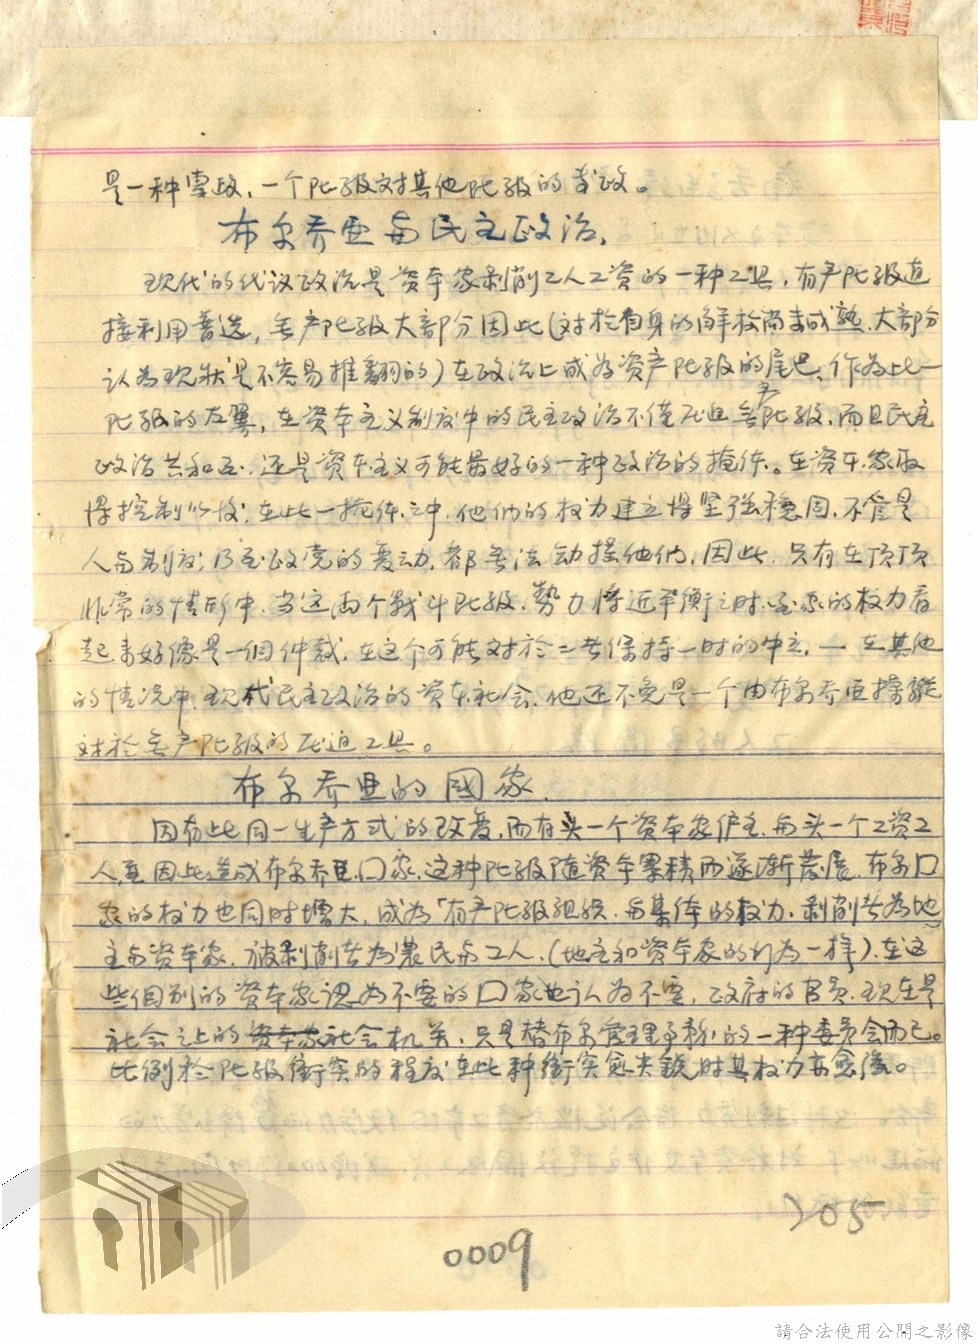 是一种專政，一个阶级对其他阶级的专政。
布尔乔亚与民主政治，
现代的代议政治是资本家剥削工人工资的一种工具，有产阶级直
接利用普选，無产阶级大部分因此(对於自身的解放尚未成熟，大部分
认为现狀是不容易推翻的)在政治上成为资产阶级的尾巴，作为此一
阶级的左翼，在资本主义制度中的民主政治不僅压迫無产阶级，而且民主
政治共和国，还是资本主义可能最好的一种政治的掩体。在资本家取
得控制以後，在此一掩体之中，他们的权力建立得坚强穩固，不管是
人与制度，乃至政党的变动，都無法动摇他们，因此，只有在顶顶
非常的情形中，当这两个战斗阶级，勢力将近平衡之时，国家的权力看
起来好像是一個仲裁，在这个可能对於二者保持一时的中立，一在其他
的情况中，现代民主政治的资本社会，他还不免是一个由布尔乔亚操縱
对於無产阶级的压迫工具。
布尔乔亚的國家，
因有此同一生产方式的改变，而有头一个资本家僱主，与头一个工资工
人，直因此造成布尔乔亚囗家，这种阶级随资本累積而逐渐發展，布尔囗
家的权力也同时增大，成为「有产阶级组织，与集体的权力，剥削者为地
主与资本家，被剥削者为農民与工人，(地主和资本家的行为一样)，在这
些個别的资本家認为不要的囗家也认为不要，政府的官员，现在是
社会之上的资本家社会机关，只是替布尔管理事務的一种委员会而已。
比例於阶级衝突的程度在此种衝突愈尖銳时其权力亦愈强。
205
0009
請合法使用公開之影像